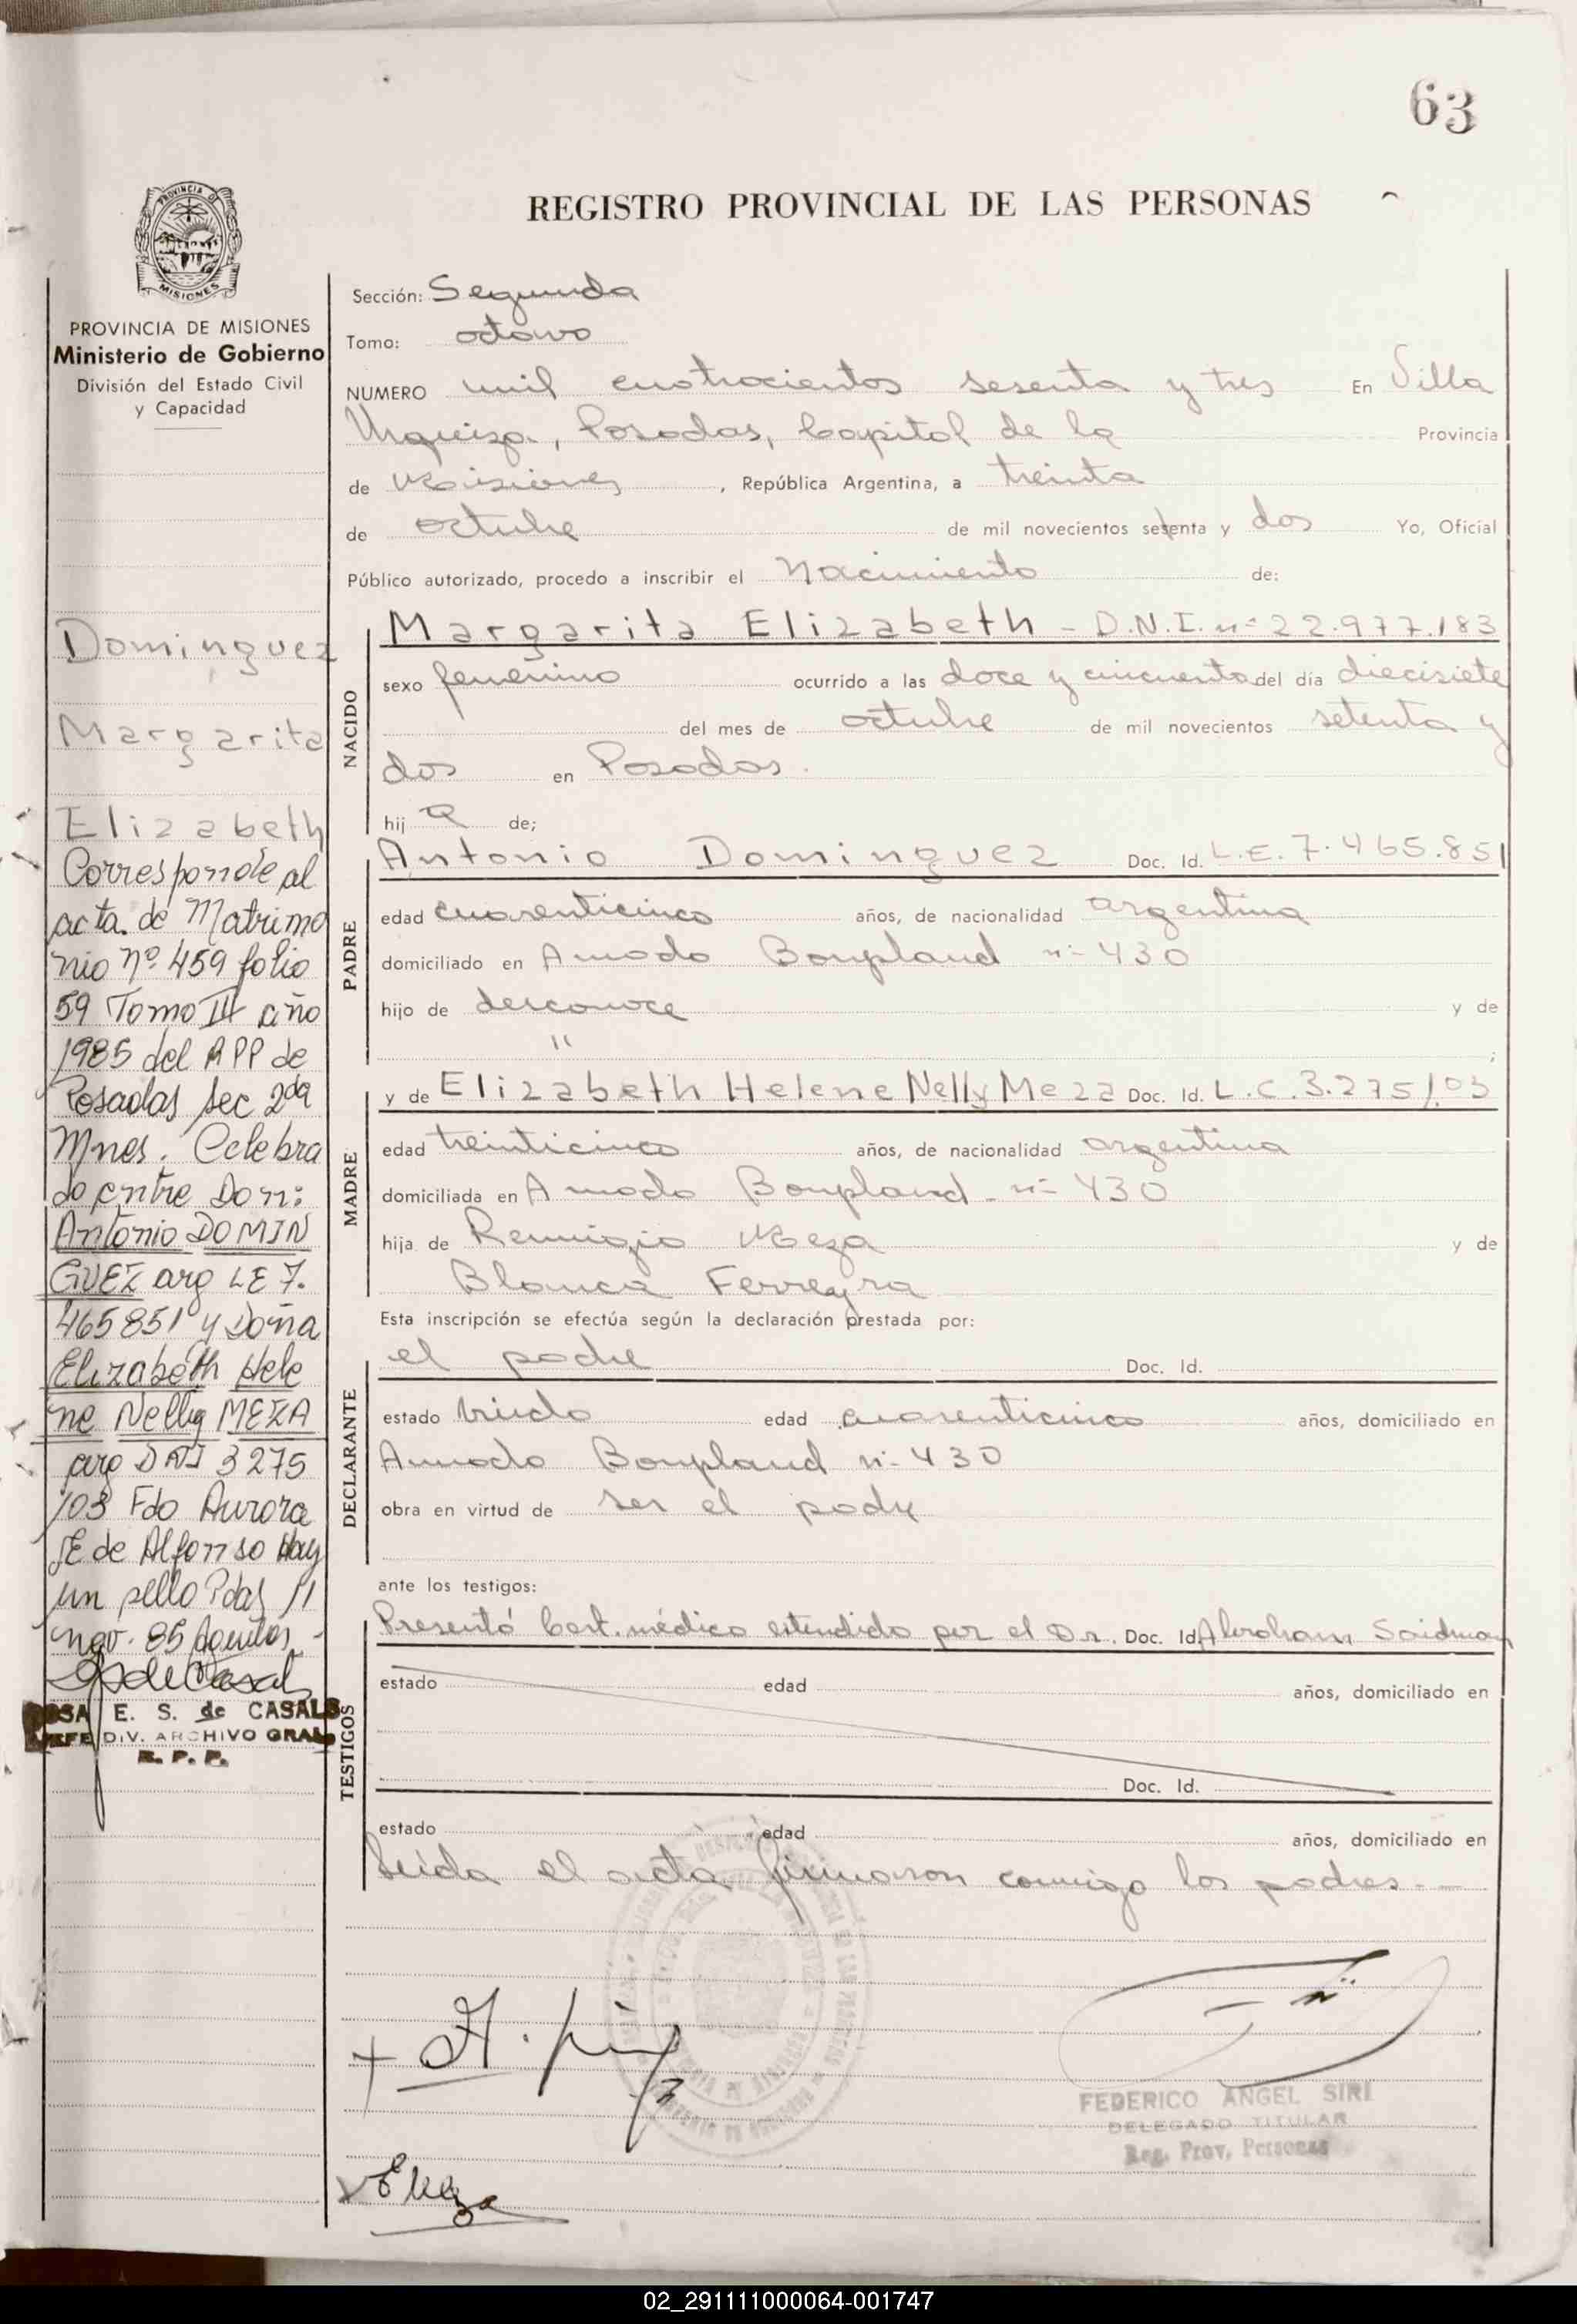 63
REGISTRO PROVINCIAL DE LAS PERSONAS
PROVINCIA DE MISIONES
Ministerio de Gobierno
División del Estado Civil
y Capacidad
Dominguez
Margarita
Elizabeth
Corresponde al
acta de Matrimo
nio nº 459 folio
59 Tomo II año
1985 del RPP de
Posadas sec 2da
Mnes. Celebra
do entre Don:
Antonio DOMIN
GUEZ arg LE 7.
465851 y Doña
Elizabeth Hele
ne Nelly MEZA
arg DNI 3275
103 Fdo Aurora
de Alfonso Hay
un sello Pdas 11
nov. 85
E. S. de CASALS
JEFE DIV. ARCHIVO GRAL
R. P. P.
Sección: Segunda
Tomo: octavo
NUMERO mil cuatrocientos sesenta y tres En Villa
Urquiza, Posadas, Capital de la Provincia
de Misiones, República Argentina, a treinta
de octubre de mil novecientos setenta y dos Yo, Oficial
Público autorizado, procedo a inscribir el Nacimiento de:
NACIDO
Margarita Elizabeth - D.N.I. nº 22.977.183
sexo femenino ocurrido a las doce y cincuenta del día diecisiete
del mes de octubre de mil novecientos setenta y
dos en Posadas.
hij a de;
PADRE
Antonio Dominguez Doc. Id. L.E. 7.465.851
edad cuarenticinco años, de nacionalidad argentina
domiciliado en Amado Bonpland nº 430
hijo de desconoce y de
" ;
MADRE
y de Elizabeth Helene Nelly Meza Doc. Id. L.C. 3.275.103
edad treinticinco años, de nacionalidad argentina
domiciliada en Amado Bonpland - nº 430
hija de Remigio Meza y de
Blanca Ferreyra
Esta inscripción se efectúa según la declaración prestada por:
DECLARANTE
el padre Doc. Id.
estado viudo edad cuarenticinco años, domiciliado en
Amado Bonpland nº 430
obra en virtud de ser el padre
ante los testigos:
TESTIGOS
Presentó Cert. médico extendido por el Dr. Doc. Id. Abraham Saidman
estado edad años, domiciliado en
Doc. Id.
estado edad años, domiciliado en
Leída el acta firmaron conmigo los padres.-
FEDERICO ANGEL SIRI
DELEGADO TITULAR
Reg. Prov. Personas
02_291111000064-001747